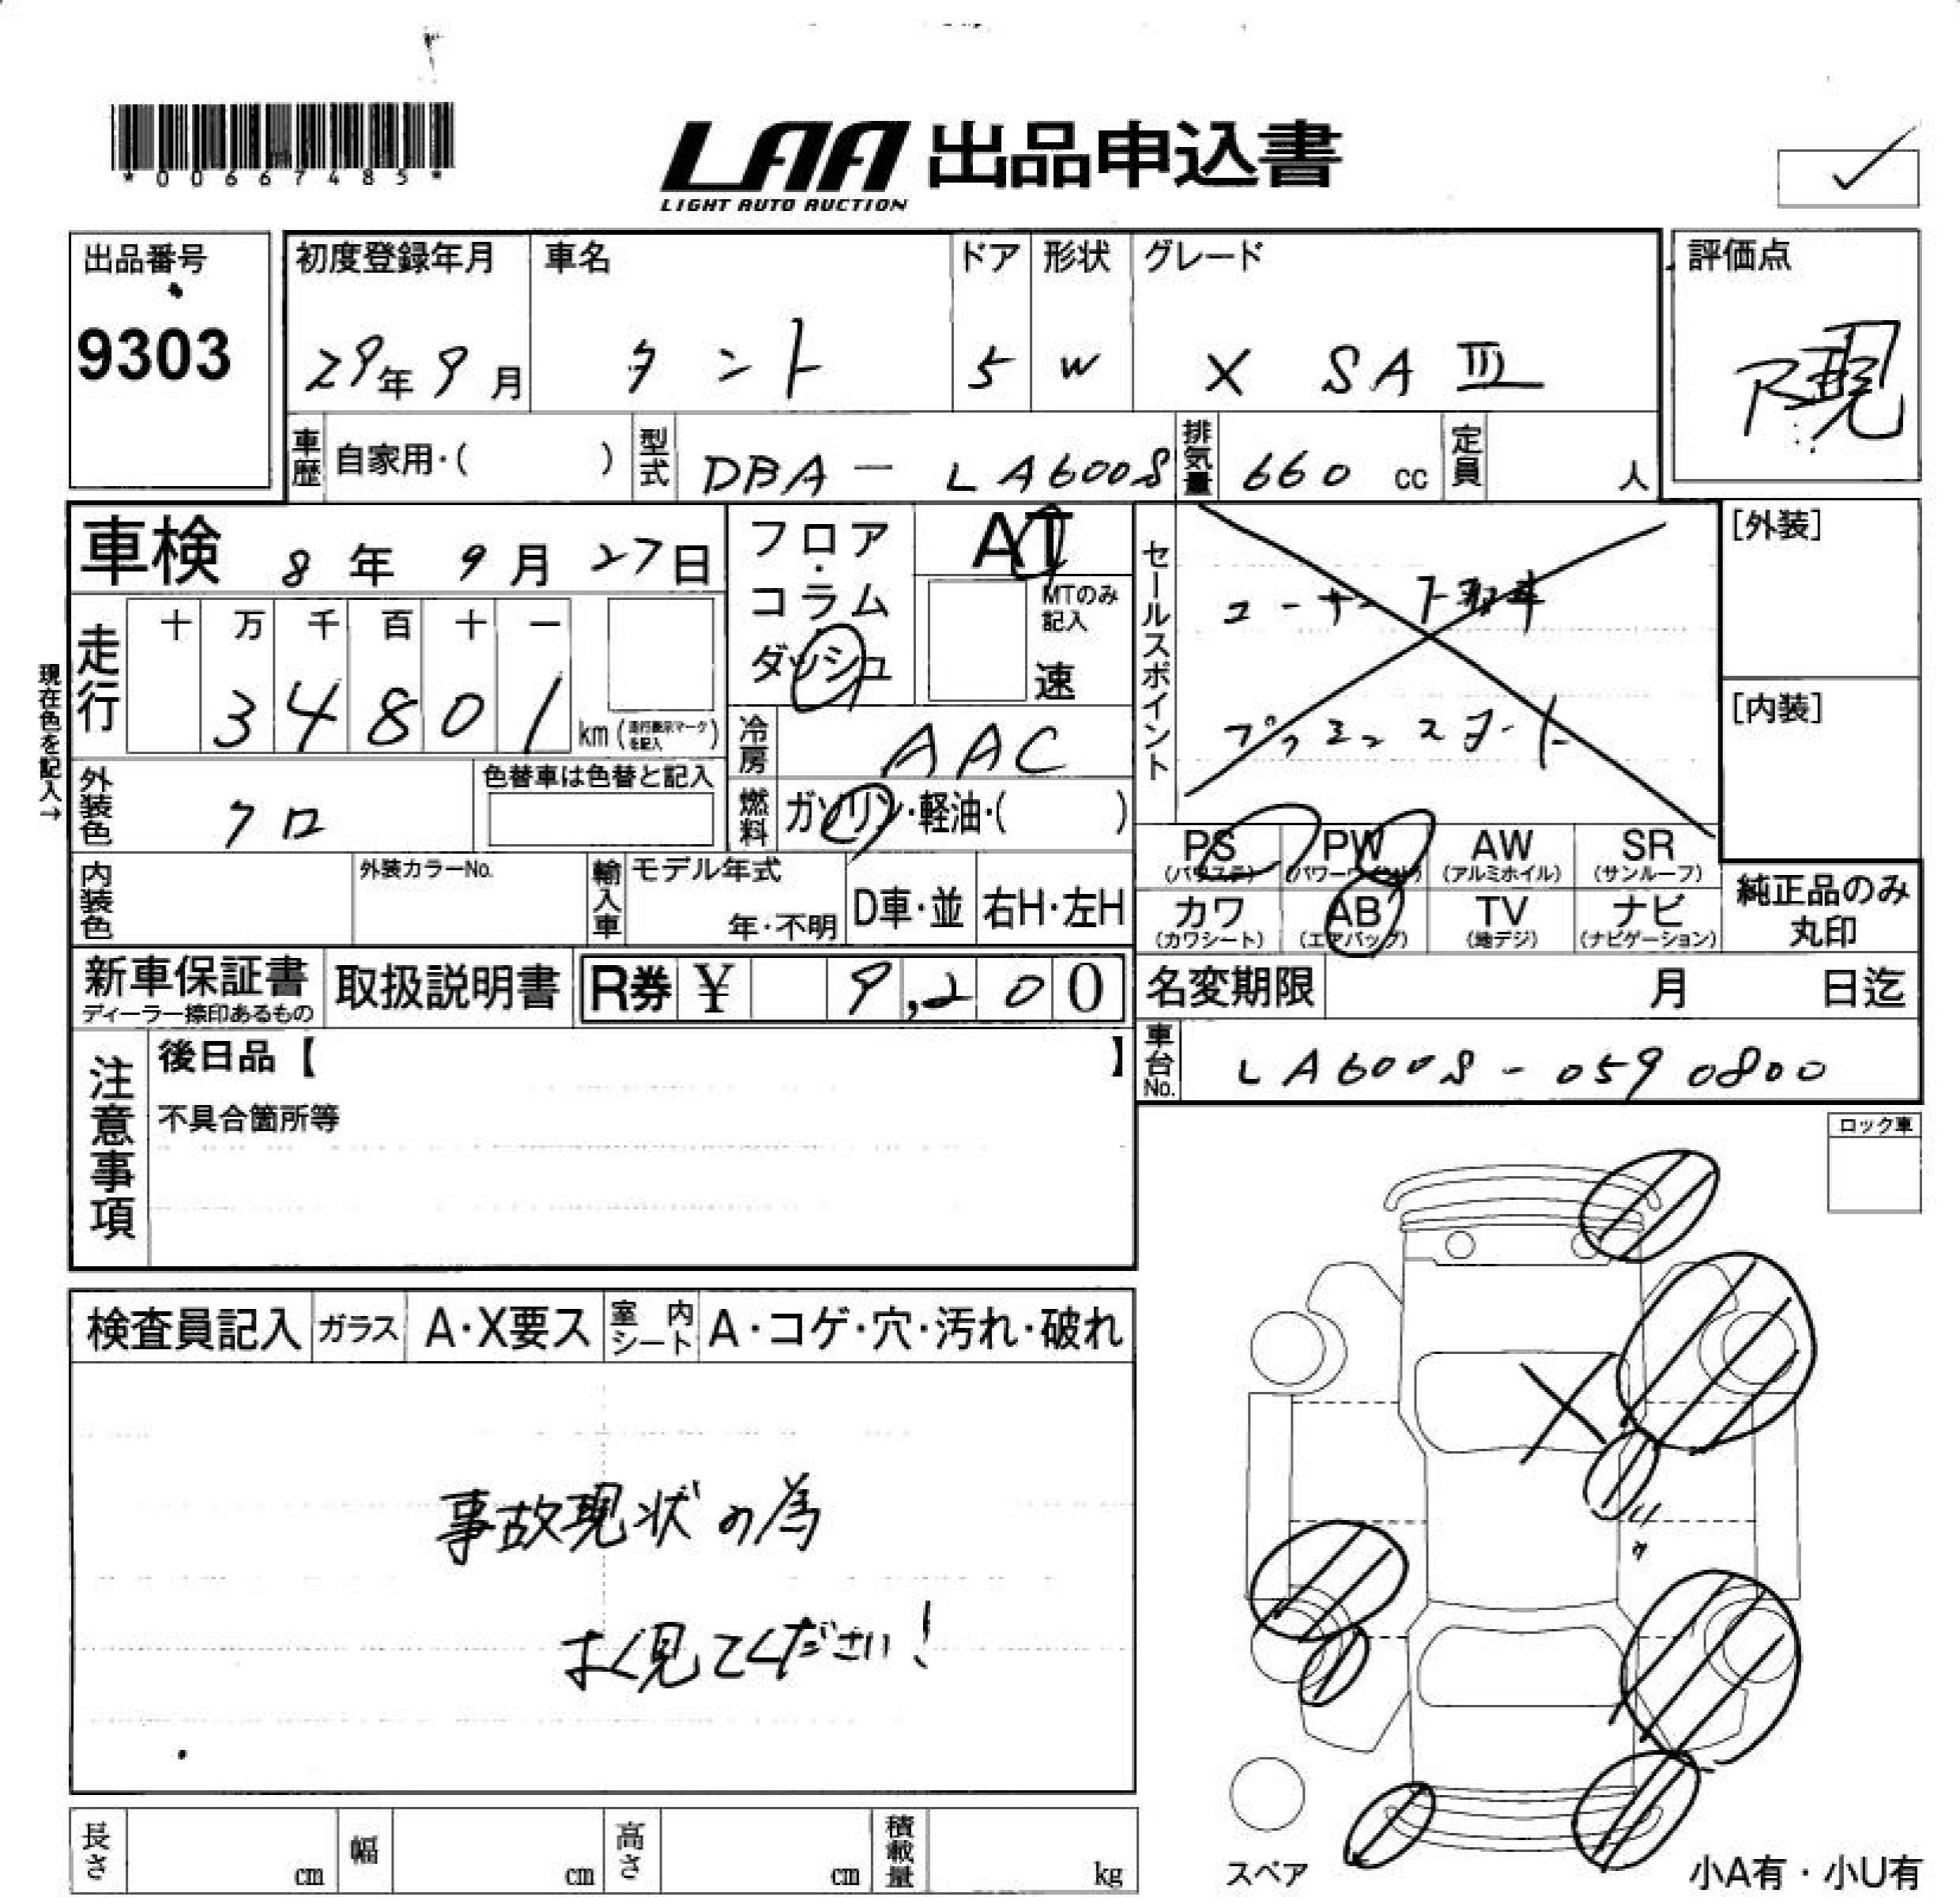 *00667485*
LAA 出品申込書
LIGHT AUTO AUCTION
出品番号
9303
初度登録年月
29年9月
車名
タント
ドア
5
形状
W
グレード
X SAⅢ
評価点
R現
車歴
自家用・( )
型式
DBA-LA600S
排気量
660 cc
定員
人
車検 8年9月27日
フロア・コラム・ダッシュ
AT
MTのみ記入
速
走行
十万千百十一
34801
km(走行表示マークを記入)
現在色を記入→
冷房
AAC
外装色
クロ
色替車は色替と記入
燃料
ガソリン・軽油・( )
内装色
外装カラーNo.
輸入車
モデル年式
年・不明
D車・並
右H・左H
セールスポイント
コーナー
[外装]
[内装]
PS
(パワステ)
PW
(パワーウインド)
AW
(アルミホイル)
SR
(サンルーフ)
カワ
(カワシート)
AB
(エアバッグ)
TV
(地デジ)
ナビ
(ナビゲーション)
純正品のみ
丸印
新車保証書
ディーラー捺印あるもの
取扱説明書
R券 ¥ 9,200
名変期限 月 日迄
車台No.
LA600S-0590800
注意事項
後日品【 】
不具合箇所等
ロック車
検査員記入
ガラス
A・X要ス
室内シート
A・コゲ・穴・汚れ・破れ
事故現状の為
よく見てください!
長さ cm
幅 cm
高さ cm
積載量 kg
スペア
小A有・小U有